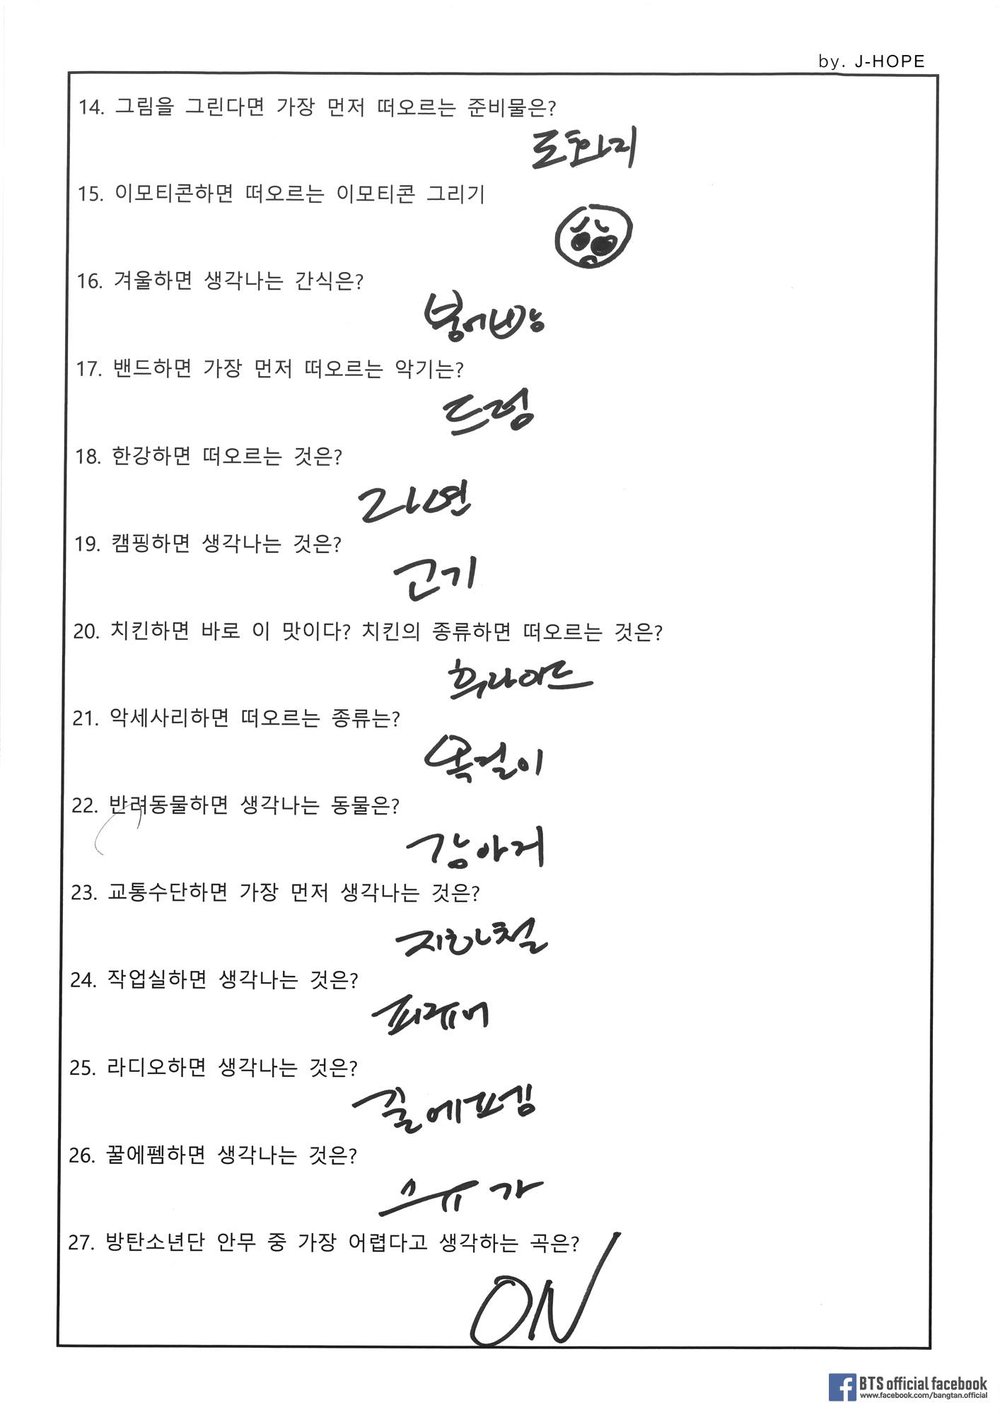 by. J-HOPE
14. 그림을 그린다면 가장 먼저 떠오르는 준비물은?
도화지
15. 이모티콘하면 떠오르는 이모티콘 그리기
16. 겨울하면 생각나는 간식은?
붕어빵
17. 밴드하면 가장 먼저 떠오르는 악기는?
드럼
18. 한강하면 떠오르는 것은?
라면
19. 캠핑하면 생각나는 것은?
고기
20. 치킨하면 바로 이 맛이다? 치킨의 종류하면 떠오르는 것은?
후라이드
21. 악세사리하면 떠오르는 종류는?
목걸이
22. 반려동물하면 생각나는 동물은?
강아지
23. 교통수단하면 가장 먼저 생각나는 것은?
지하철
24. 작업실하면 생각나는 것은?
피규어
25. 라디오하면 생각나는 것은?
꿀에펨
26. 꿀에펨하면 생각나는 것은?
슈가
27. 방탄소년단 안무 중 가장 어렵다고 생각하는 곡은?
ON
BTS official facebook
www.facebook.com/bangtan.official